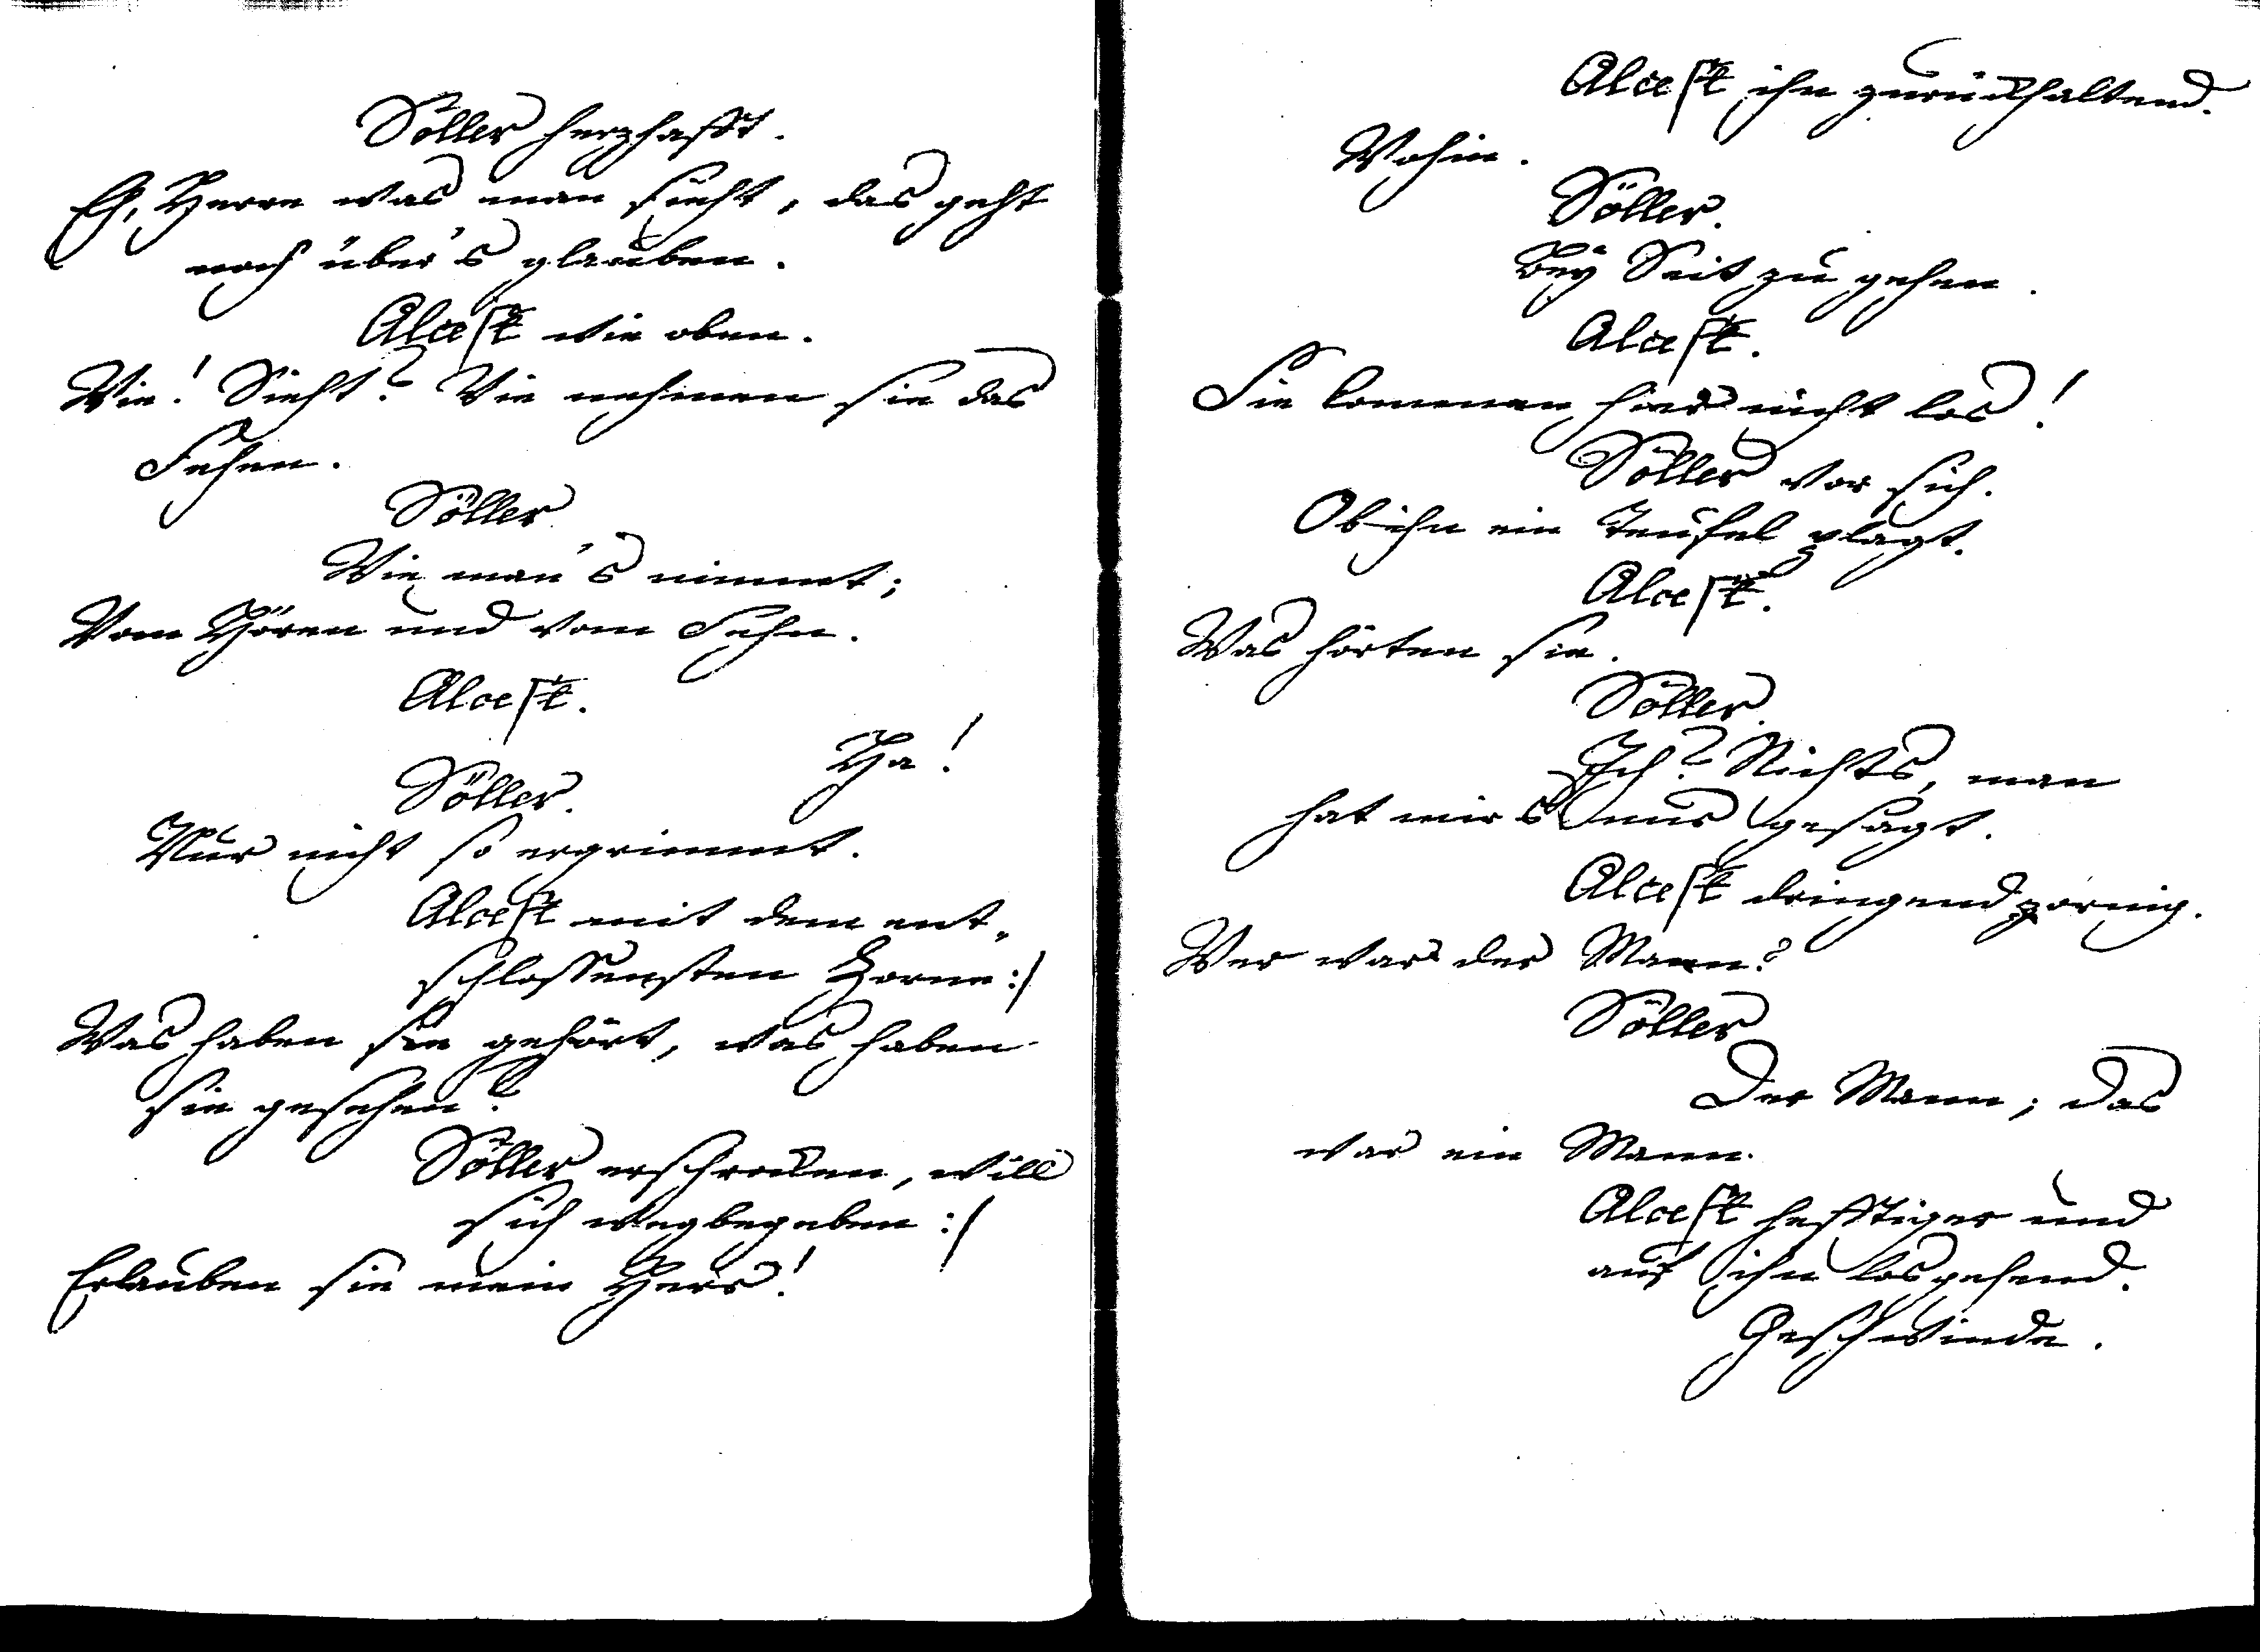 Söller herzhafft.
Eh, Herre was man sieht, das geht
noch über's glauben.
Alcest wie oben.
Wie! Sieht? Wie nehmen sie das
Sehen.
Söller
Wie man's nimmt;
Vom Hören und vom Sehn.
Alcest.
Ha!
Söller.
Nur nicht so ergrimmt.
Alcest mit dem ent,
schlossensten Zorne :/
Was haben sie gehört, was haben
sie gesehen?
Söller erschrocken, will
sich wegbegeben :/
Erlauben sie mein Herr!
Alcest ihn zurückhaltend.
Wohin.
Söller.
Bey Seit zu gehen.
Alcest.
Sie kommen hier nicht los!
Söller vor sich.
Ob ihn ein Teufel plagt.
Alcest.
Was hörten sie.
Söller.
Ich? Nichts, man
hat mirs nur gesagt.
Alcest dringend zornig.
Wer war der Mann?
Söller
Der Mann; das
war ein Mann.
Alcest hefftiger und
auf ihn losgehend.
Geschwinde.